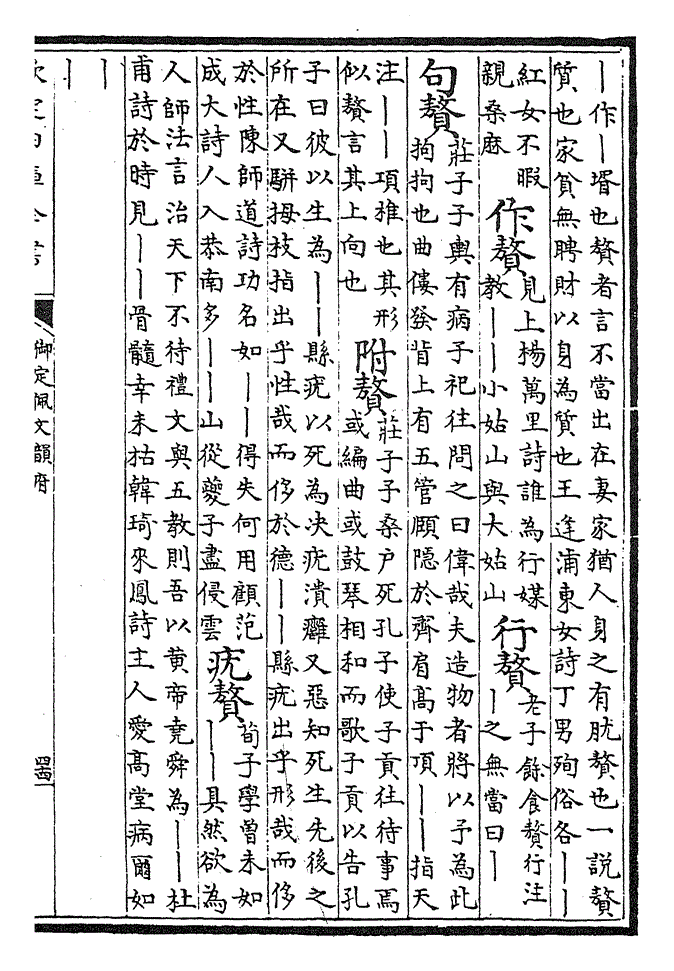 丨作丨壻也贅者言不當出在妻家猶人身之有肬贅也一説贅
質也家貧無聘財以身為質也王逢浦東女詩丁男殉俗各丨丨
紅女不暇
親桑麻
作贅
見上楊萬里詩誰為行媒
教丨丨小姑山與大姑山
行贅
老子餘食贅行注
丨之無當曰丨
句贅
莊子子輿有病子祀往問之曰偉哉夫造物者將以予為此
拘拘也曲僂發背上有五管頤隱於齊肩高于頂丨丨指天
注丨丨項椎也其形
似贅言其上向也
附贅
莊子子桑户死孔子使子貢往待事焉
或編曲或鼓琴相和而歌子貢以告孔
子曰彼以生為丨丨縣疣以死為决疣潰癰又惡知死生先後之
所在又駢拇枝指出乎性哉而侈於德丨丨縣疣出乎形哉而侈
於性陳師道詩功名如丨丨得失何用顧范
成大詩人入恭南多丨丨山從夔子盡侵雲
疣贅
荀子學曾未如
丨丨具然欲為
人師法言治天下不待禮文與五教則吾以黄帝堯舜為丨丨杜
甫詩於時見丨丨骨髓幸未枯韓琦來鳳詩主人愛高堂病爾如
丨
丨
欽定四庫全書
御定佩文韻府